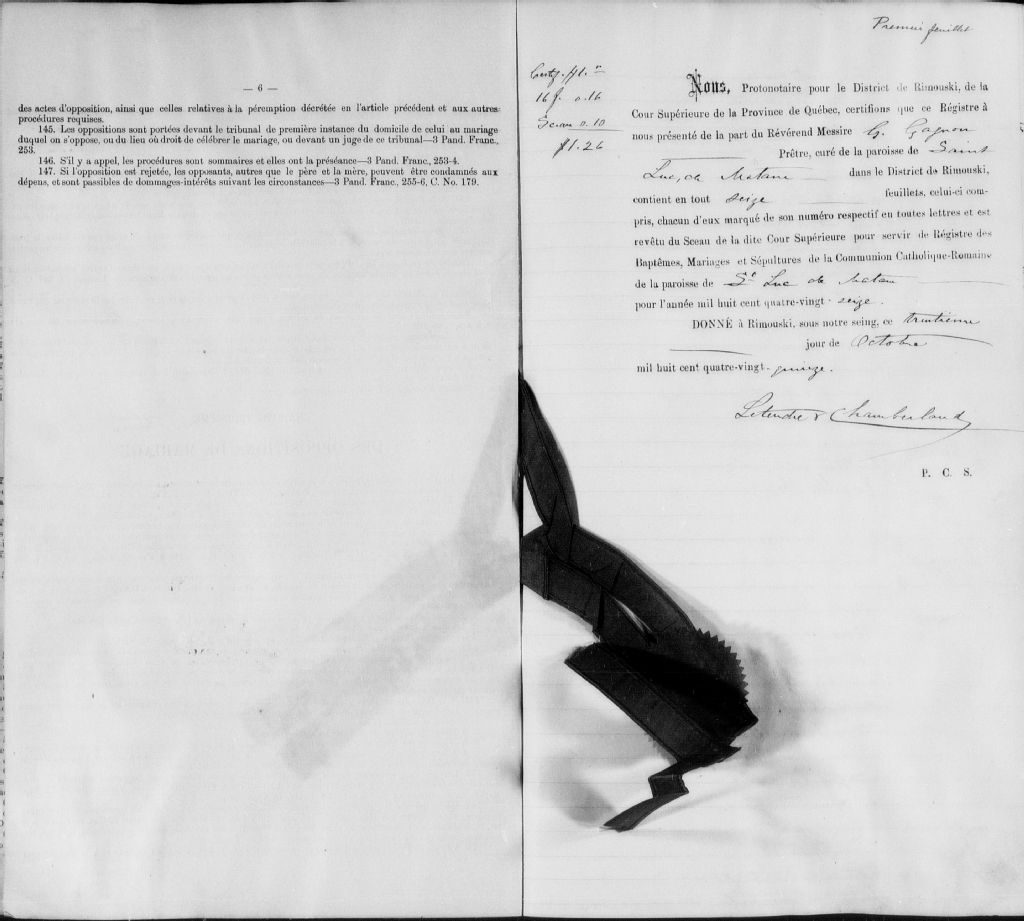 — 6 —
des actes d'opposition, ainsi que celles relatives à la péremption décrétée en l'article précédent et aux autres
procédures requises.
145. Les oppositions sont portées devant le tribunal de première instance du domicile de celui au mariage
duquel on s'oppose, ou du lieu où droit de célébrer le mariage, ou devant un juge de ce tribunal—3 Pand. Franc.,
253.
146. S'il y a appel, les procédures sont sommaires et elles ont la préséance—3 Pand. Franc., 253-4.
147. Si l'opposition est rejetée, les opposants, autres que le père et la mère, peuvent être condamnés aux
dépens, et sont passibles de dommages-intérêts suivant les circonstances—3 Pand. Franc., 255-6, C. No. 179.
Premier feuillet
Certif. $1. "
16 f. 0.16
Sceau 0.10
$1.26
Nous, Protonotaire pour le District de Rimouski, de la
Cour Supérieure de la Province de Québec, certifions que ce Régistre à
nous présenté de la part du Révérend Messire G. Gagnon
Prêtre, curé de la paroisse de Saint
Luc, de Matane dans le District de Rimouski,
contient en tout seize feuillets, celui-ci com-
pris, chacun d'eux marqué de son numéro respectif en toutes lettres et est
revêtu du Sceau de la dite Cour Supérieure pour servir de Régistre des
Baptêmes, Mariages et Sépultures de la Communion Catholique-Romaine
de la paroisse de St Luc de Matane
pour l'année mil huit cent quatre-vingt-seize.
DONNÉ à Rimouski, sous notre seing, ce trentième
jour de Octobre
mil huit cent quatre-vingt-quinze.
Letendre & Chamberland
P. C. S.